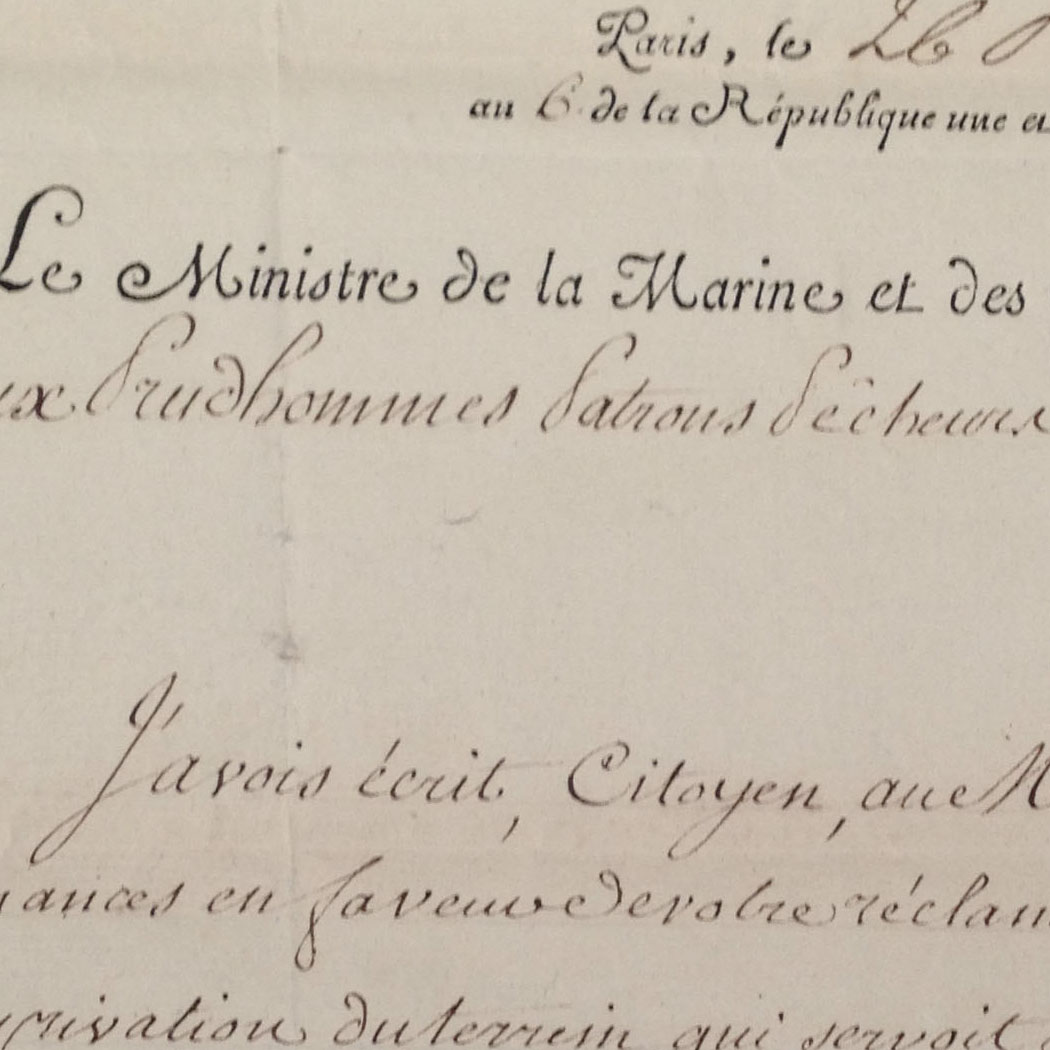 Paris, le 26
au 6. de la République une et
Le Ministre de la Marine et des
ux Prudhommes Patrons Pêcheurs
J'avois écrit, Citoyen, au M
nances en faveur de votre réclam
privation du terrein qui servoit